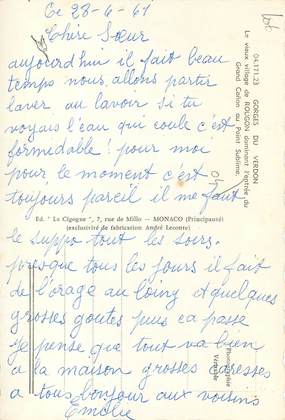 Ce 28-6-61
Chère Sœur
aujourd'hui il fait beau
temps nous allons partir
laver au lavoir si tu
voyais l'eau qui coule c'est
formidable! pour moi
pour le moment c'est
toujours pareil il me faut
le suppo tout les soirs.
presque tous les jours il fait
de l'orage au loing et quelques
grosses goutes puis ca passe
Je pense que tout va bien
a la maison grosses caresses
a tous bonjour aux voisins
Emélie
04.171.23 GORGES DU VERDON
Le vieux village de ROUGON dominant l'entrée du
Grand Cañon au Point Sublime.
Ed. "La Cigogne", 7, rue de Millo — MONACO (Principauté)
(exclusivité de fabrication André Leconte)
Photographie
Véritable